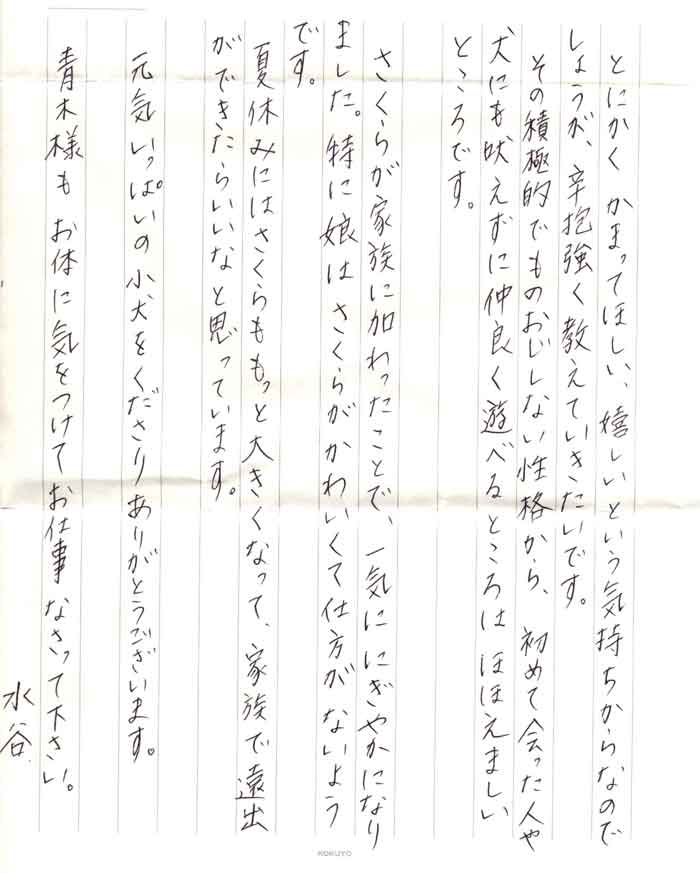 とにかく かまってほしい、嬉しいという気持ちからなので
しょうが、辛抱強く教えていきたいです。
その積極的でものおじしない性格から、初めて会った人や
犬にも吠えずに仲良く遊べるところは ほほえましい
ところです。
さくらが家族に加わったことで、一気に にぎやかになり
ました。特に娘は さくらがかわいくて仕方がないよう
です。
夏休みにはさくらももっと大きくなって、家族で遠出
ができたらいいなと思っています。
元気いっぱいの小犬をくださりありがとうございます。
青木様も お体に気をつけてお仕事 なさって下さい。
水谷
KOKUYO